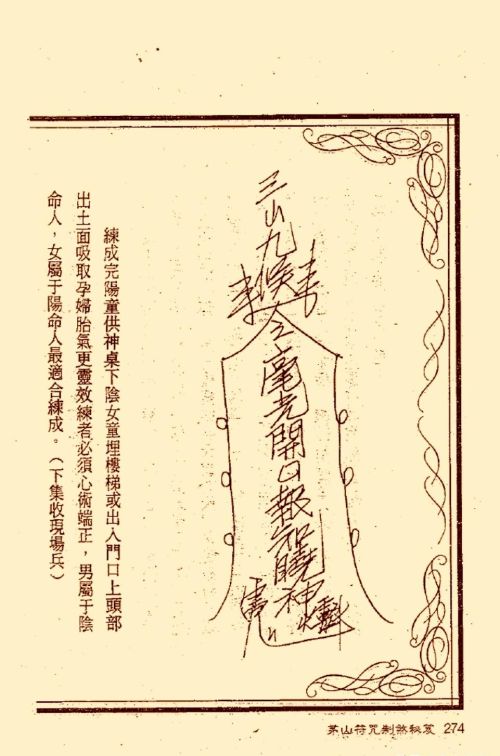 三山九侯
令毫光開口報知曉神
練成完陽童供神桌下陰女童埋樓梯或出入門口上頭部
出土面吸取孕婦胎氣更靈效練者必須心術端正，男屬于陰
命人，女屬于陽命人最適合練成。（下集收現場兵）
茅山符咒制煞秘笈 274